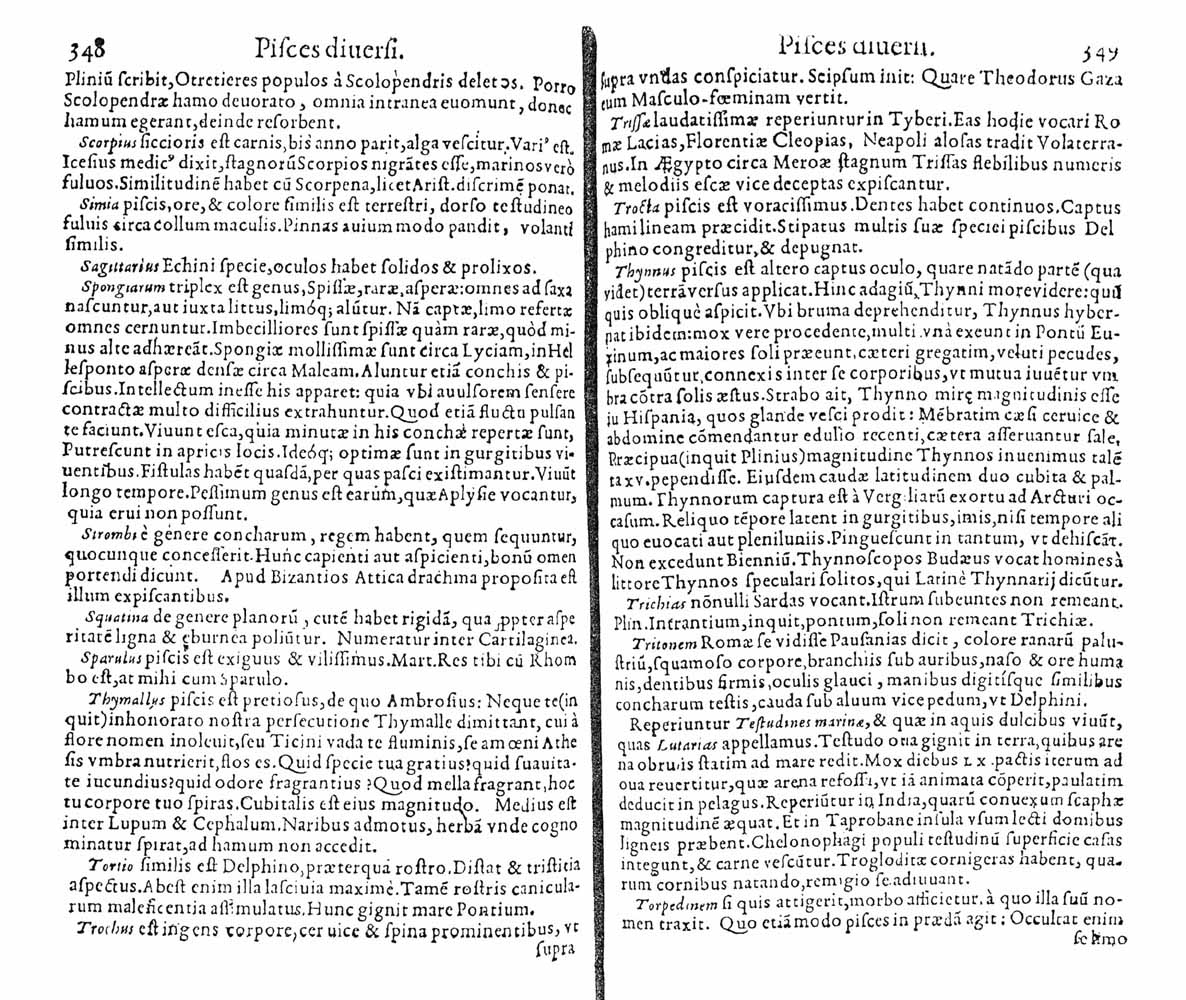 348 Piſces diuerſi.
Pliniũ ſcribit,Otretieres populos à Scolopendris deletos. Porro
Scolopendræ hamo deuorato, omnia intranea euomunt, donec
hamum egerant,deinde reſorbent.
Scorpius ſiccioris eſt carnis,bis anno parit,alga veſcitur.Variꝰ eſt.
Iceſius medicꝰ dixit,ſtagnorũ Scorpios nigrãtes eſſe,marinos verò
fuluos.Similitudinẽ habet cũ Scorpena,licet Ariſt.diſcrimẽ ponat.
Simia piſcis,ore,& colore ſimilis eſt terreſtri, dorſo teſtudineo
fuluis circa collum maculis.Pinnas auium modo pandit, volanti
ſimilis.
Sagittarius Echini ſpecie,oculos habet ſolidos & prolixos.
Spongiarum triplex eſt genus,Spiſſæ,raræ,aſperæ:omnes ad ſaxa
naſcuntur,aut iuxta littus,limóq; alũtur. Nã captæ,limo refertæ
omnes cernuntur.Imbecilliores ſunt ſpiſſæ quàm raræ,quòd mi-
nus alte adhæreãt.Spongiæ molliſſimæ ſunt circa Lyciam,in Hel
leſponto aſperæ denſæ circa Maleam.Aluntur etiã conchis & pi-
ſcibus.Intellectum ineſſe his apparet: quia vbi auulſorem ſenſere
contractæ multo difficilius extrahuntur.Quod etiã fluctu pulſan
te faciunt.Viuunt eſca,quia minutæ in his conchæ repertæ ſunt,
Putreſcunt in apricis locis.Ideóq; optimæ ſunt in gurgitibus vi-
uentibus.Fiſtulas habẽt quaſdã,per quas paſci exiſtimantur.Viuũt
longo tempore.Peſſimum genus eſt earum,quæ Aplyſie vocantur,
quia erui non poſſunt.
Strombi è genere concharum, regem habent, quem ſequuntur,
quocunque conceſſerit.Hunc capienti aut aſpicienti,bonũ omen
portendi dicunt. Apud Bizantios Attica drachma propoſita eſt
illum expiſcantibus.
Squatina de genere planorũ, cutẽ habet rigidã, qua ꝓpter aſpe
ritatẽ ligna & eburnea poliũtur. Numeratur inter Cartilaginea.
Sparulus piſcis eſt exiguus & viliſſimus.Mart.Res tibi cũ Rhom
bo eſt,at mihi cum Sparulo.
Thymallus piſcis eſt pretioſus,de quo Ambroſius: Neque te(in
quit)inhonorato noſtra perſecutione Thymalle dimittant, cui à
flore nomen inoleuit,ſeu Ticini vada te fluminis,ſe amœni Athe
ſis vmbra nutrierit,flos es.Quid ſpecie tua gratius?quid ſuauita-
te iucundius?quid odore fragrantius?Quod mella fragrant,hoc
tu corpore tuo ſpiras.Cubitalis eſt eius magnitudo. Medius eſt
inter Lupum & Cephalum.Naribus admotus, herbã vnde cogno
minatur ſpirat,ad hamum non accedit.
Tortio ſimilis eſt Delphino,præterquã roſtro.Diſtat & triſtitia
aſpectus.Abeſt enim illa laſciuia maximè.Tamẽ roſtris canicula-
rum maleficentia aſſimulatus.Hunc gignit mare Pontium.
Trochus eſt ingens corpore,ceruice & ſpina prominentibus, vt
ſupra
Piſces diuerſi. 349
ſupra vndas conſpiciatur. Seipſum init: Quare Theodorus Gaza
eum Maſculo-fœminam vertit.
Triſſæ laudatiſſimæ reperiuntur in Tyberi.Eas hodie vocari Ro
mæ Lacias,Florentiæ Cleopias, Neapoli aloſas tradit Volaterra-
nus.In Ægypto circa Meroæ ſtagnum Triſſas flebilibus numeris
& melodiis eſcæ vice deceptas expiſcantur.
Trocta piſcis eſt voraciſſimus.Dentes habet continuos.Captus
hami lineam præcidit.Stipatus multis ſuæ ſpeciei piſcibus Del
phino congreditur,& depugnat.
Thynnus piſcis eſt altero captus oculo, quare natãdo partẽ (qua
videt)terrã verſus applicat.Hinc adagiũ,Thynni more videre:qui
quis obliquè aſpicit.Vbi bruma deprehenditur, Thynnus hyber-
nat ibidem:mox vere procedente,multi vnà exeunt in Pontũ Eu-
xinum,ac maiores ſoli præeunt,cæteri gregatim,veluti pecudes,
ſubſequũtur,connexis inter ſe corporibus,vt mutua iuuẽtur vm
bra cõtra ſolis æſtus.Strabo ait, Thynno mirę magnitudinis eſſe
iu Hiſpania, quos glande veſci prodit: Mẽbratim cæſi ceruice &
abdomine cõmendantur edulio recenti,cætera aſſeruantur ſale,
Præcipua(inquit Plinius)magnitudine Thynnos inuenimus talẽ
ta xv.pependiſſe. Eiuſdem caudæ latitudinem duo cubita & pal-
mum.Thynnorum captura eſt à Vergiliarũ exortu ad Arcturi oc-
caſum. Reliquo tẽpore latent in gurgitibus,imis,niſi tempore ali
quo euocati aut pleniluniis.Pingueſcunt in tantum, vt dehiſcãt.
Non excedunt Bienniũ.Thynnoſcopos Budæus vocat homines à
littore Thynnos ſpeculari ſolitos,qui Latinè Thynnarij dicũtur.
Trichias nõnulli Sardas vocant.Iſtrum ſubeuntes non remeant.
Plin.Intrantium,inquit,pontum,ſoli non remeant Trichiæ.
Tritonem Romæ ſe vidiſſe Pauſanias dicit, colore ranarũ palu-
ſtriũ,ſquamoſo corpore,branchiis ſub auribus,naſo & ore huma
nis,dentibus firmis,oculis glauci, manibus digitíſque ſimilibus
concharum teſtis,cauda ſub aluum vice pedum,vt Delphini.
Reperiuntur Teſtudines marinæ,& quæ in aquis dulcibus viuũt,
quas Lutarias appellamus.Teſtudo oua gignit in terra,quibus are
na obrutis ſtatim ad mare redit.Mox diebus LX.pactis iterum ad
oua reuertitur,quæ arena refoſſi,vt iã animata cõperit,paulatim
deducit in pelagus.Reperiũtur in India,quarũ conuexum ſcaphæ
magnitudinẽ æquat. Et in Taprobane inſula vſum lecti domibus
ligneis præbent.Chelonophagi populi teſtudinũ ſuperficie caſas
integunt,& carne veſcũtur.Trogloditæ cornigeras habent, qua-
rum cornibus natando,remigio ſe adiuuant.
Torpedinem ſi quis attigerit,morbo afficietur. à quo illa ſuũ no-
men traxit. Quo etiã modo piſces in prædã agit: Occultat enim
ſe limo